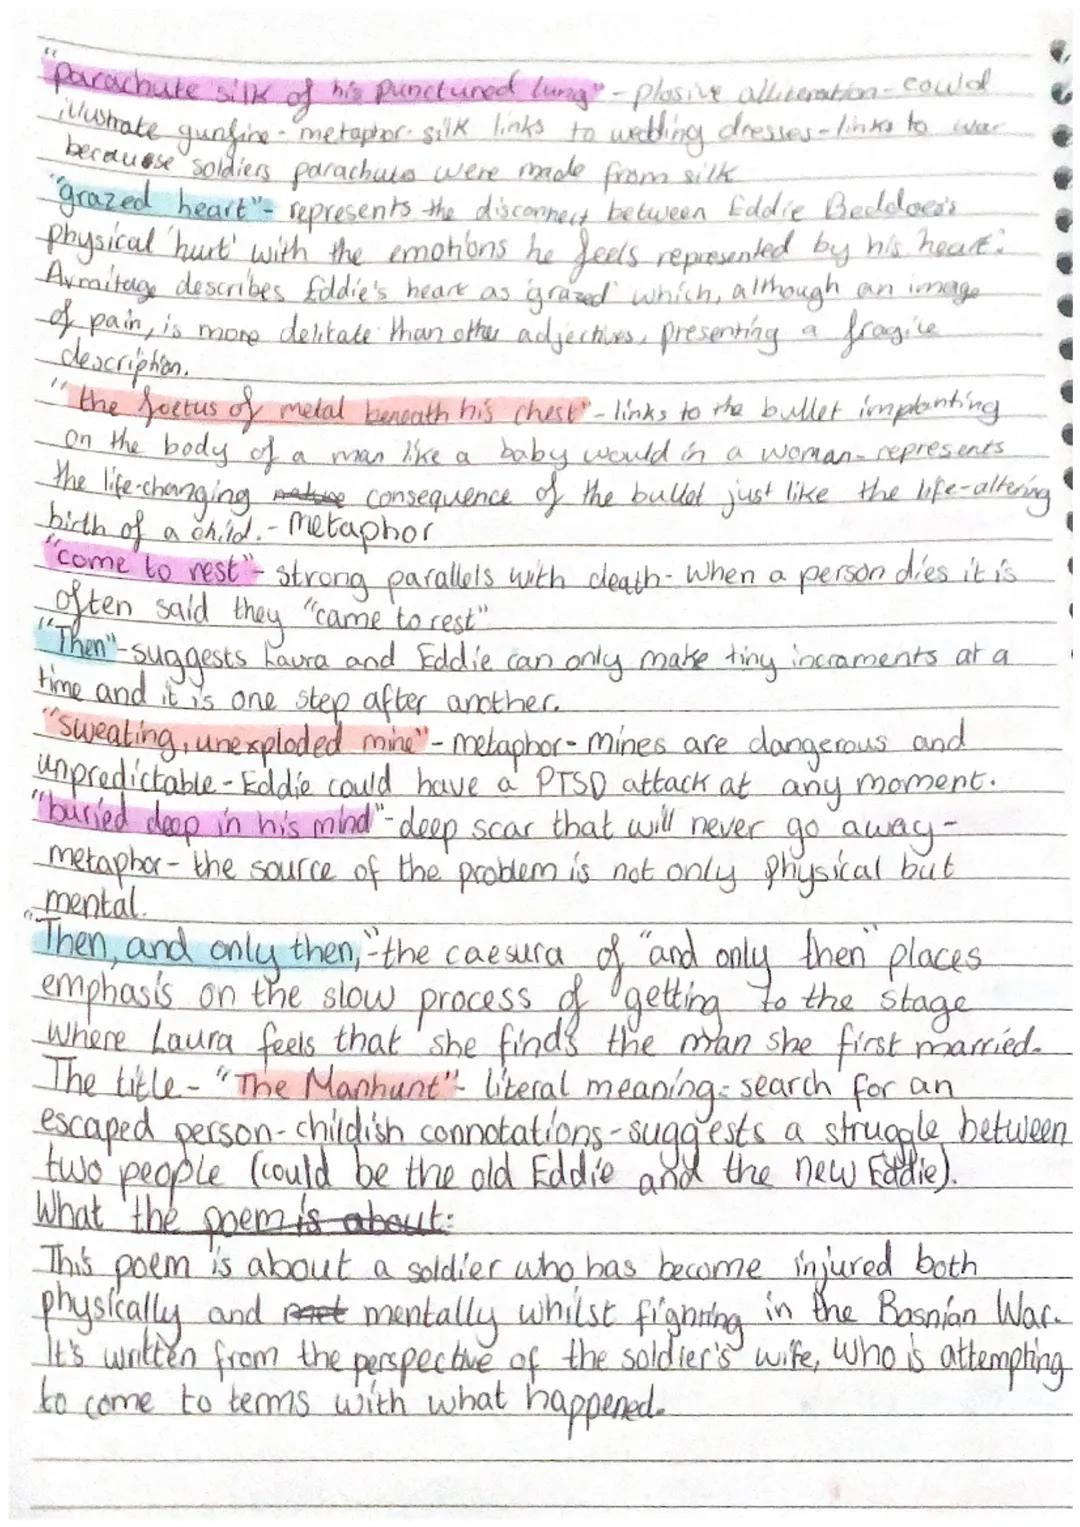 "parachute silk of his punctured lung" - plosive alliteration - could
illustrate gunfire - metaphor - silk links to wedding dresses - links to war
becauose soldiers parachutes were made from silk
"grazed heart" - represents the disconnect between Eddie Beddoes's
physical 'hurt' with the emotions he feels represented by his 'heart'.
Armitage describes Eddie's heart as 'grazed' which, although an image
of pain, is more delicate than other adjectives, presenting a fragile
description.
"the foetus of metal beneath his chest" - links to the bullet implanting
on the body of a man like a baby would in a woman - represents
the life-changing nature consequence of the bullet just like the life-altering
birth of a child. - metaphor
"come to rest" - strong parallels with death - When a person dies it is
often said they "came to rest"
"Then" - suggests Laura and Eddie can only make tiny incraments at a
time and it is one step after another.
"sweating, unexploded mine" - metaphor - mines are dangerous and
unpredictable - Eddie could have a PTSD attack at any moment.
"buried deep in his mind" - deep scar that will never go away -
metaphor - the source of the problem is not only physical but
mental.
"Then, and only then," - the caesura of "and only then" places
emphasis on the slow process of getting to the stage
where Laura feels that she finds the man she first married.
The title - "The Manhunt" - literal meaning - search for an
escaped person - childish connotations - suggests a struggle between
two people (could be the old Eddie and the new Eddie).
What the poem is about:
This poem is about a soldier who has become injured both
physically and mentally whilst fighting in the Bosnian War.
It's written from the perspective of the soldier's wife, who is attempting
to come to terms with what happened.